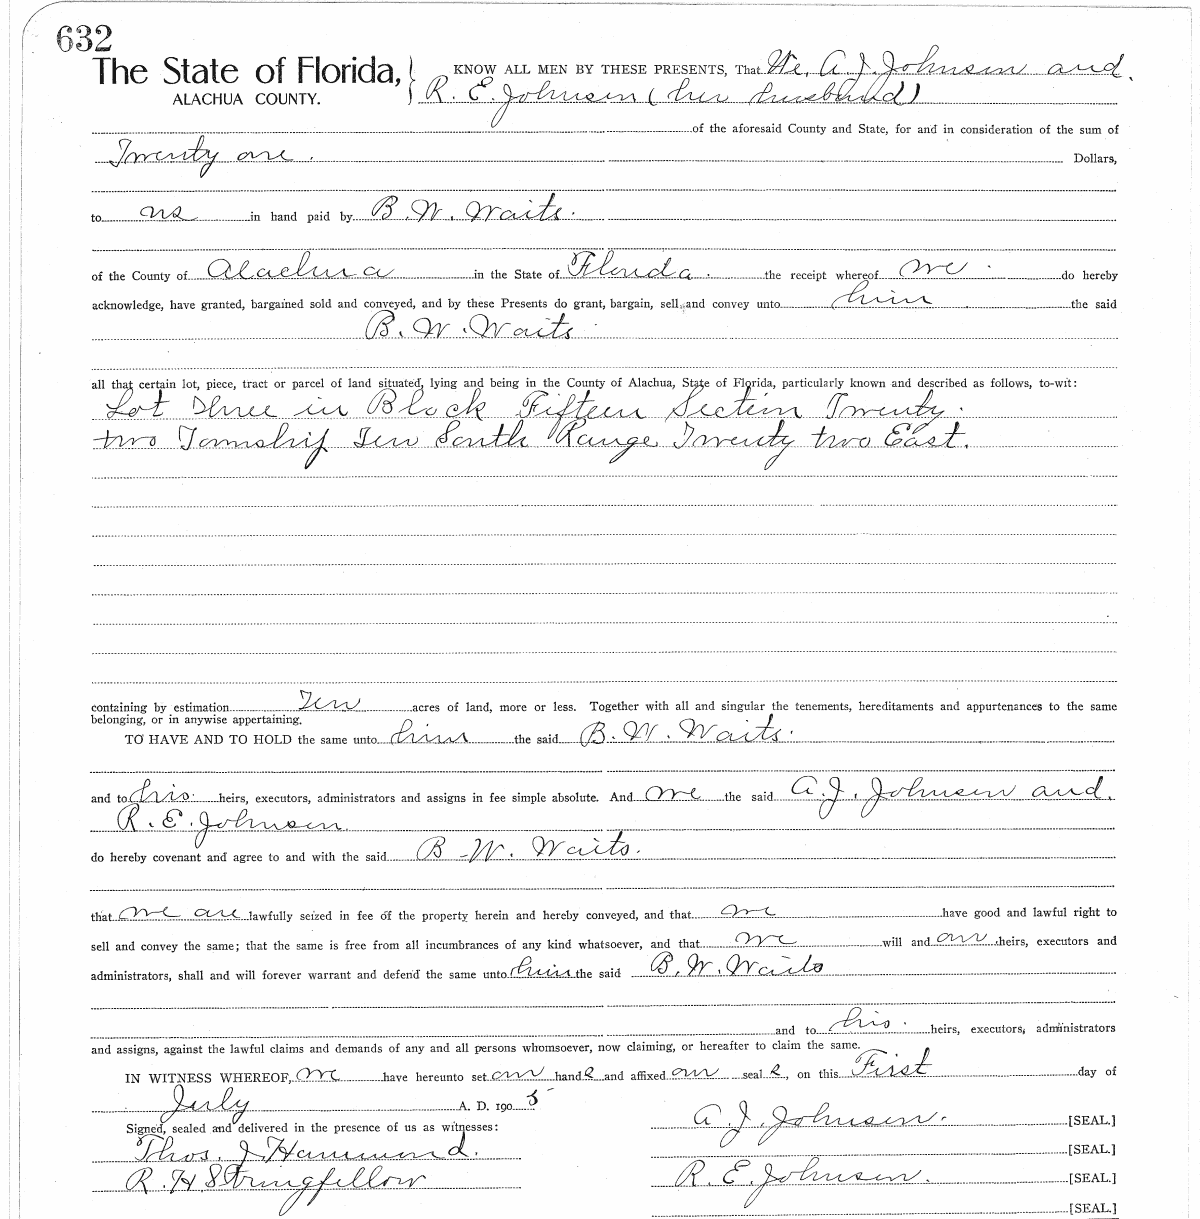 632
The State of Florida,
ALACHUA COUNTY.
KNOW ALL MEN BY THESE PRESENTS, That We, A. J. Johnson and
R. E. Johnson (her husband)
of the aforesaid County and State, for and in consideration of the sum of
Twenty one. Dollars,
to us in hand paid by B. W. Waits.
of the County of Alachua in the State of Florida. the receipt whereof we do hereby
acknowledge, have granted, bargained sold and conveyed, and by these Presents do grant, bargain, sell, and convey unto him the said
B. W. Waits
all that certain lot, piece, tract or parcel of land situated, lying and being in the County of Alachua, State of Florida, particularly known and described as follows, to-wit:
Lot Three in Block Fifteen Section Twenty
two Township Ten South Range Twenty two East.
containing by estimation Ten acres of land, more or less. Together with all and singular the tenements, hereditaments and appurtenances to the same
belonging, or in anywise appertaining.
TO HAVE AND TO HOLD the same unto him the said B. W. Waits.
and to his heirs, executors, administrators and assigns in fee simple absolute. And we the said A. J. Johnson and
R. E. Johnson
do hereby covenant and agree to and with the said B. W. Waits.
that we are lawfully seized in fee of the property herein and hereby conveyed, and that we have good and lawful right to
sell and convey the same; that the same is free from all incumbrances of any kind whatsoever, and that we will and our heirs, executors and
administrators, shall and will forever warrant and defend the same unto him the said B. W. Waits
and to his heirs, executors, administrators
and assigns, against the lawful claims and demands of any and all persons whomsoever, now claiming, or hereafter to claim the same.
IN WITNESS WHEREOF, we have hereunto set our hands and affixed our seals, on this First day of
July A. D. 1905
Signed, sealed and delivered in the presence of us as witnesses:
A. J. Johnson. [SEAL.]
Thos. J. Hammond.
[SEAL.]
R. H. Stringfellow
R. E. Johnson. [SEAL.]
[SEAL.]